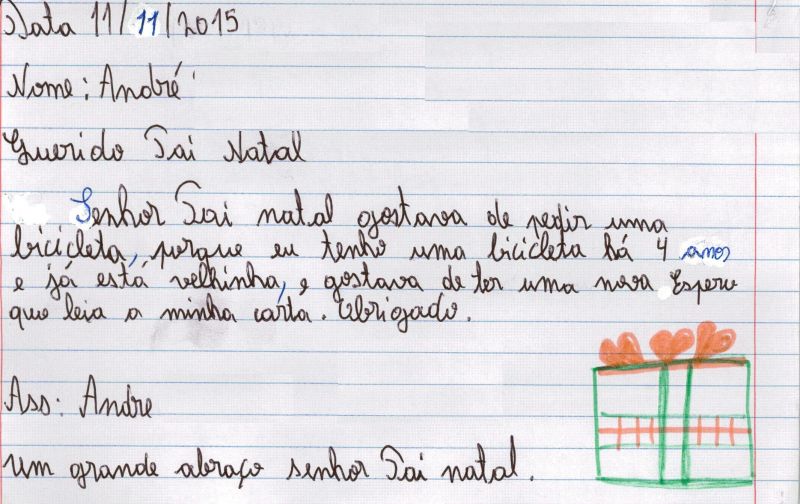 Data 11/11/2015
Nome: André
Querido Pai Natal
Senhor Pai natal gostava de pedir uma
bicicleta, porque eu tenho uma bicicleta há 4 anos
e já está velhinha, e gostava de ter uma nova Espero
que leia a minha carta. Obrigado.
Ass: Andre
um grande abraço senhor Pai natal.